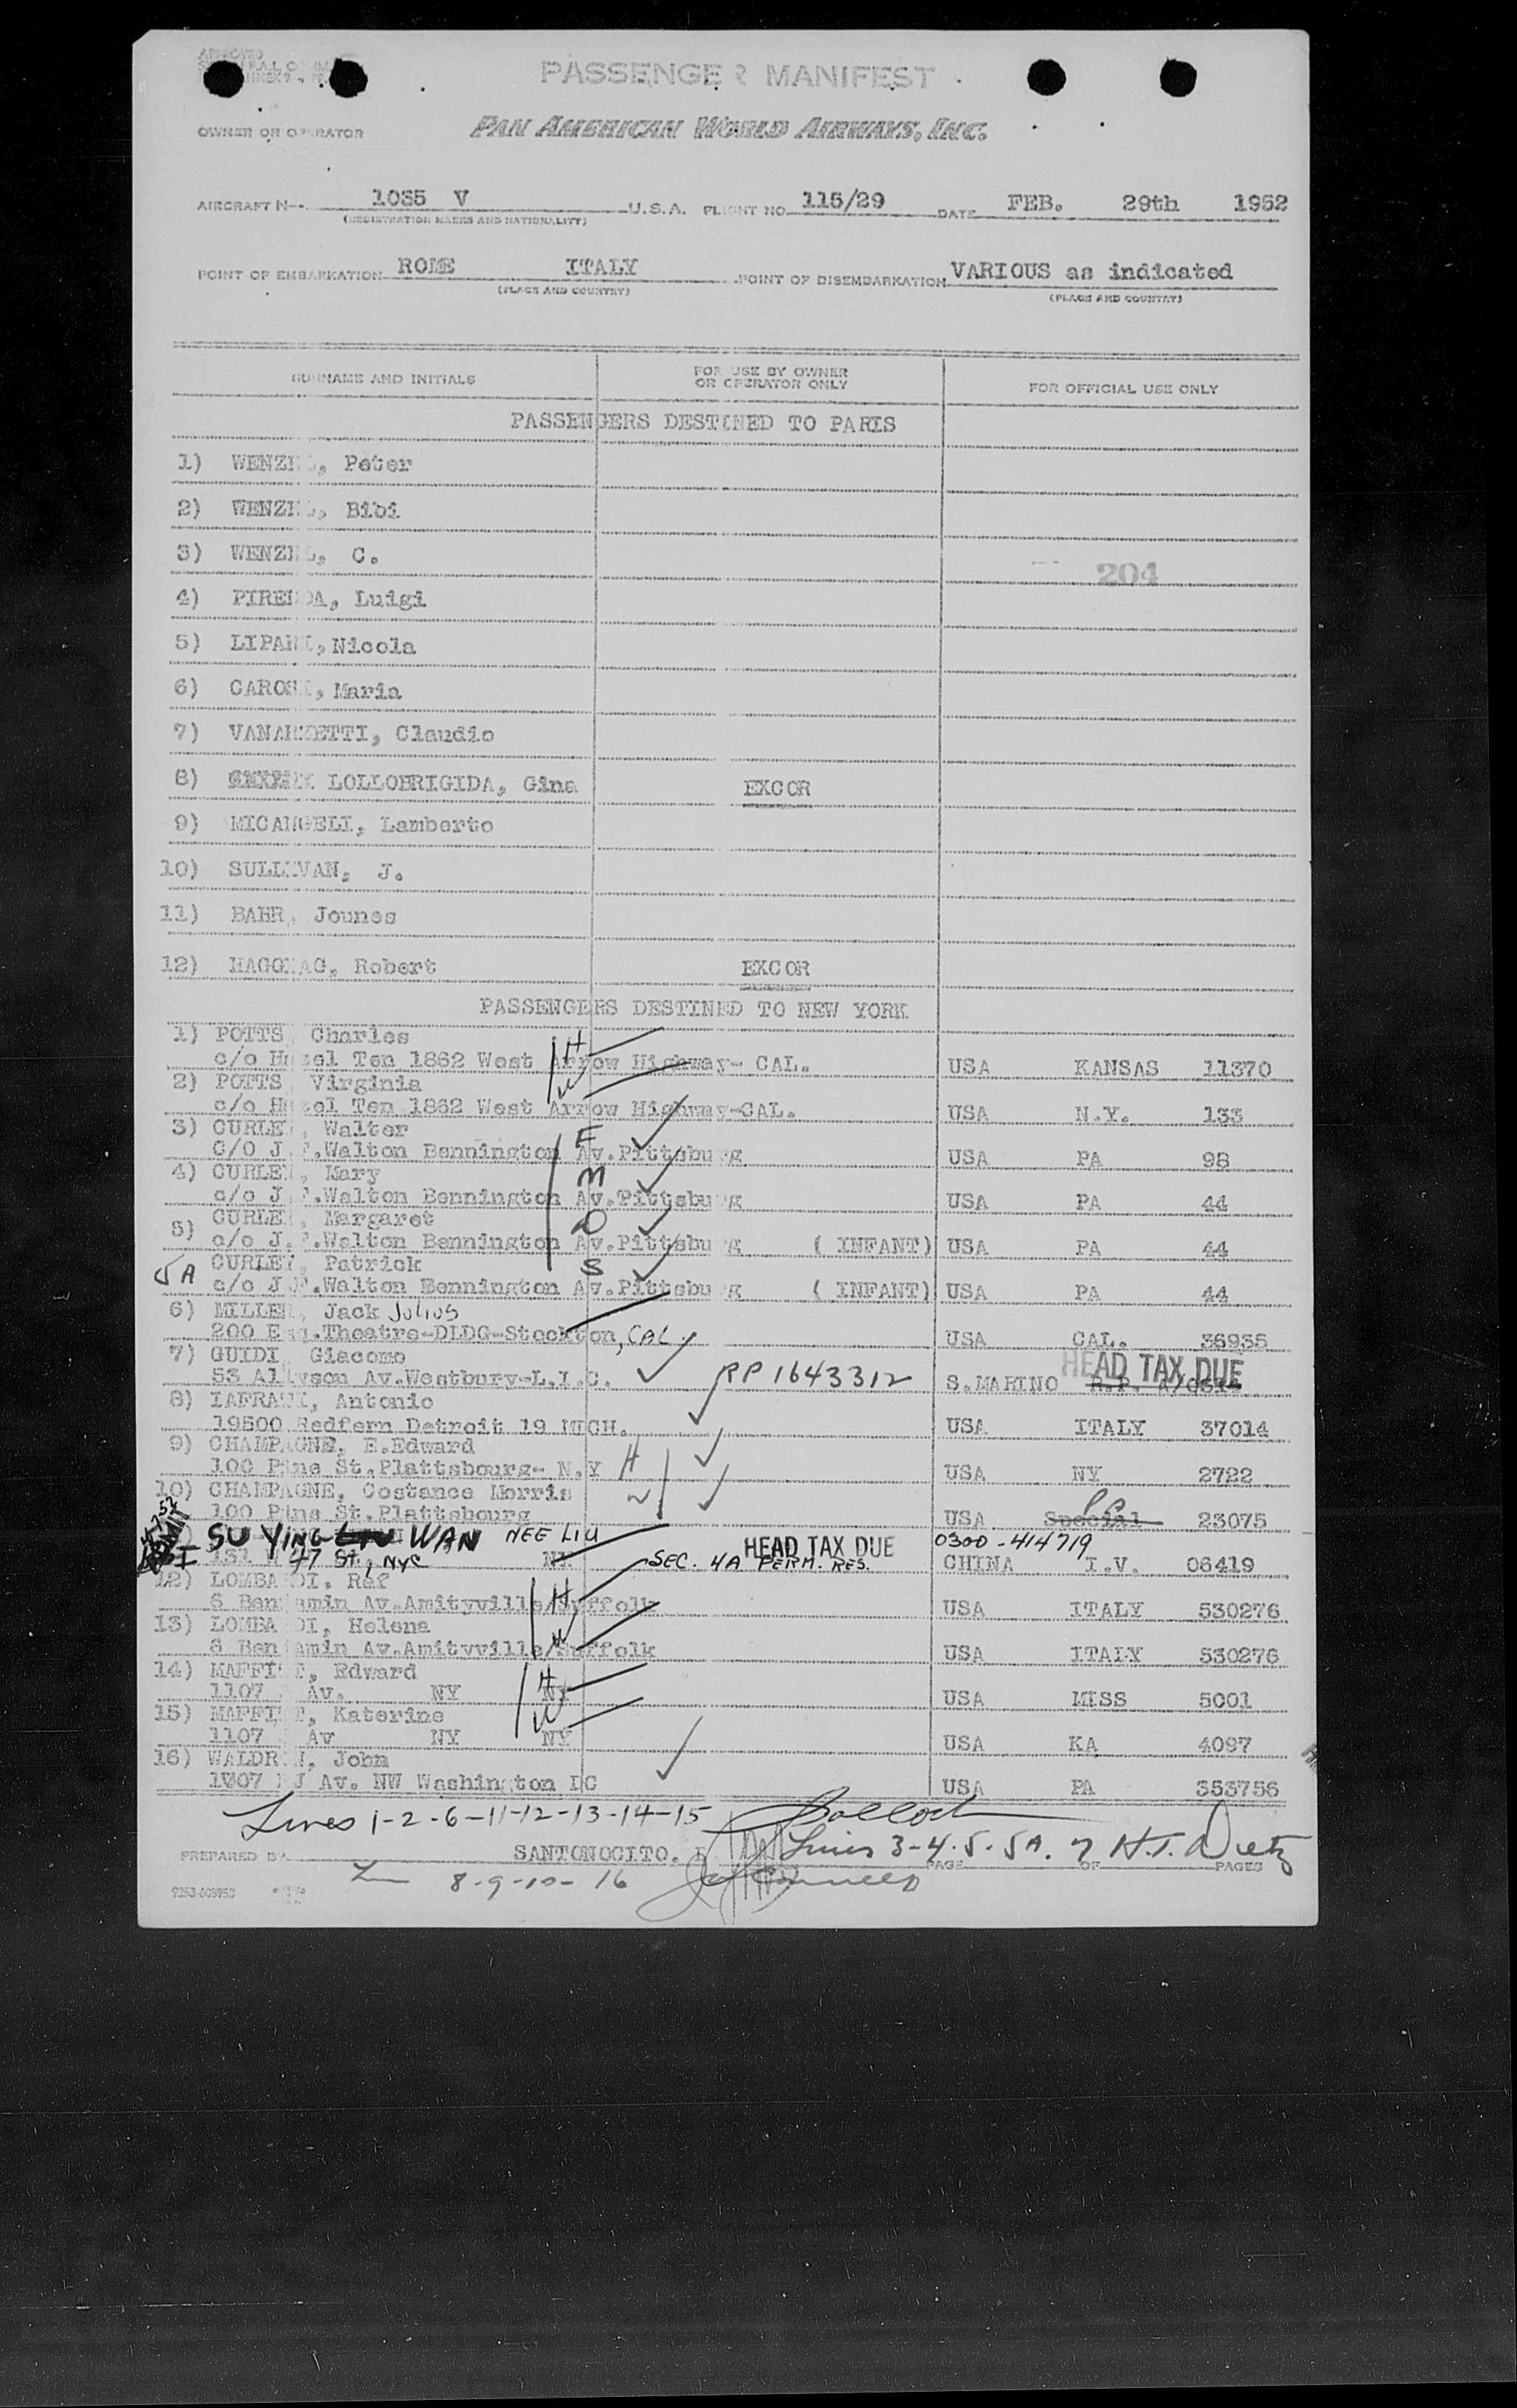 APPROVED
PASSENGER MANIFEST
OWNER OR OPERATOR PAN AMERICAN WORLD AIRWAYS, INC.
AIRCRAFT N 1035 V U.S.A. FLIGHT NO 115/29 DATE FEB. 29th 1952
(REGISTRATION MARKS AND NATIONALITY)
POINT OF EMBARKATION ROME ITALY POINT OF DISEMBARKATION VARIOUS as indicated
(PLACE AND COUNTRY) (PLACE AND COUNTRY)
SURNAME AND INITIALS FOR USE BY OWNER OR OPERATOR ONLY FOR OFFICIAL USE ONLY
PASSENGERS DESTINED TO PARIS
1) WENZEL, Peter
2) WENZEL, Bibi
3) WENZEL, C.
204
4) PIREDDA, Luigi
5) LIPARI, Nicola
6) CAROSI, Maria
7) VANARZETTI, Claudio
8) LOLLOBRIGIDA, Gina EXCOR
9) MICANGELI, Lamberto
10) SULLIVAN, J.
11) BAER, Jounes
12) HAGGIAG, Robert EXCOR
PASSENGERS DESTINED TO NEW YORK
1) POTTS, Charles H
c/o Hazel Ten 1862 West Arrow Highway- CAL. USA KANSAS 11370
2) POTTS, Virginia W
c/o Hazel Ten 1862 West Arrow Highway-CAL. USA N.Y. 133
3) CURLEY, Walter F
C/O J.F.Walton Bennington Av.Pittsburg USA PA 98
4) CURLEY, Mary M
c/o J.F.Walton Bennington Av.Pittsburg USA PA 44
5) CURLEY, Margaret D
c/o J.F.Walton Bennington Av.Pittsburg ( INFANT) USA PA 44
5A CURLEY, Patrick S
c/o J.F.Walton Bennington Av.Pittsburg ( INFANT) USA PA 44
6) MILLER, Jack Julius
200 Esq.Theatre-DLDG-Stockton, CAL. USA CAL. 36935
7) GUIDI, Giacomo HEAD TAX DUE
53 Allyson Av.Westbury-L.I.C. RP 1643312 S.MARINO R.P.
8) IAFRATI, Antonio
19500 Redfern Detroit 19 MICH. USA ITALY 37014
9) CHAMPAGNE, E.Edward
100 Pine St.Plattsbourg- N.Y H USA NY 2722
10) CHAMPAGNE, Costance Morris W
100 Pine St.Plattsbourg USA Special 23075
SU YING LIU WAN NEE LIU HEAD TAX DUE 0300-414719
131 W 47 St, NYC NY SEC. 4A PERM. RES. CHINA I.V. 06419
12) LOMBARDI. Raf H
6 Benjamin Av.Amityville/Suffolk USA ITALY 530276
13) LOMBARDI, Helena W
6 Benjamin Av.Amityville/Suffolk USA ITALY 530276
14) MAFFITT, Edward H
1107 Av. NY NY USA MISS 5001
15) MAFFITT, Katerine W
1107 Av NY NY USA KA 4097
16) WALDRON, John
Av. NW Washington DC USA PA 353756
Lines 1-2-6-11-12-13-14-15
Lines 3-4-5-5A. 7 H.T. Dietz
PREPARED BY SANTONOCITO. PAGE OF PAGES
8-9-10-16